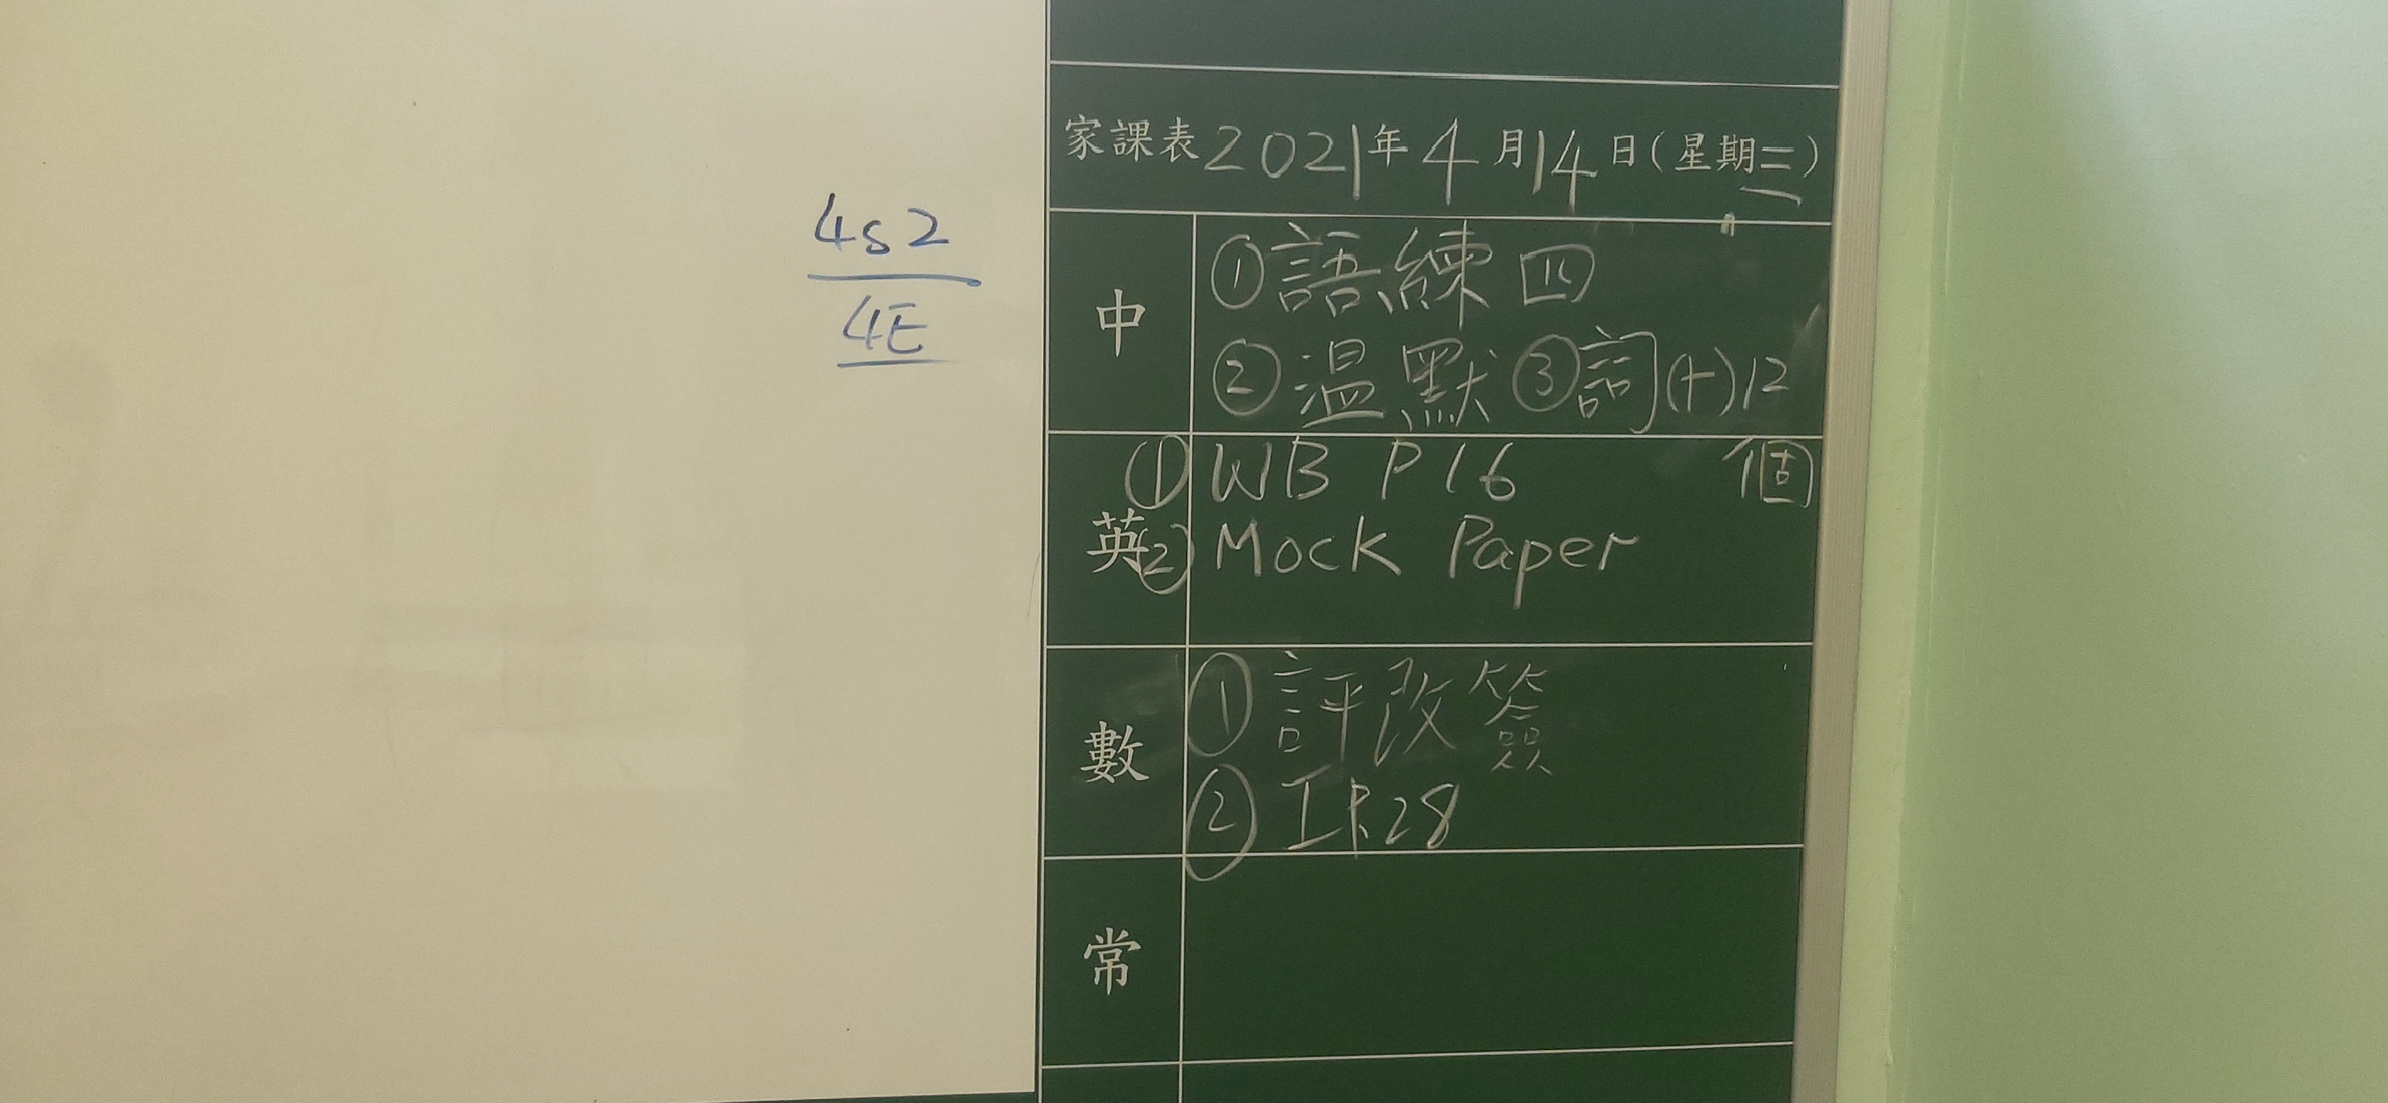 4S2
4E
家課表2021年4月14日(星期三)
中
①語練四
②溫默③詞(十)12
個
英
①WB P16
②Mock Paper
數
①評改簽
②IR28
常